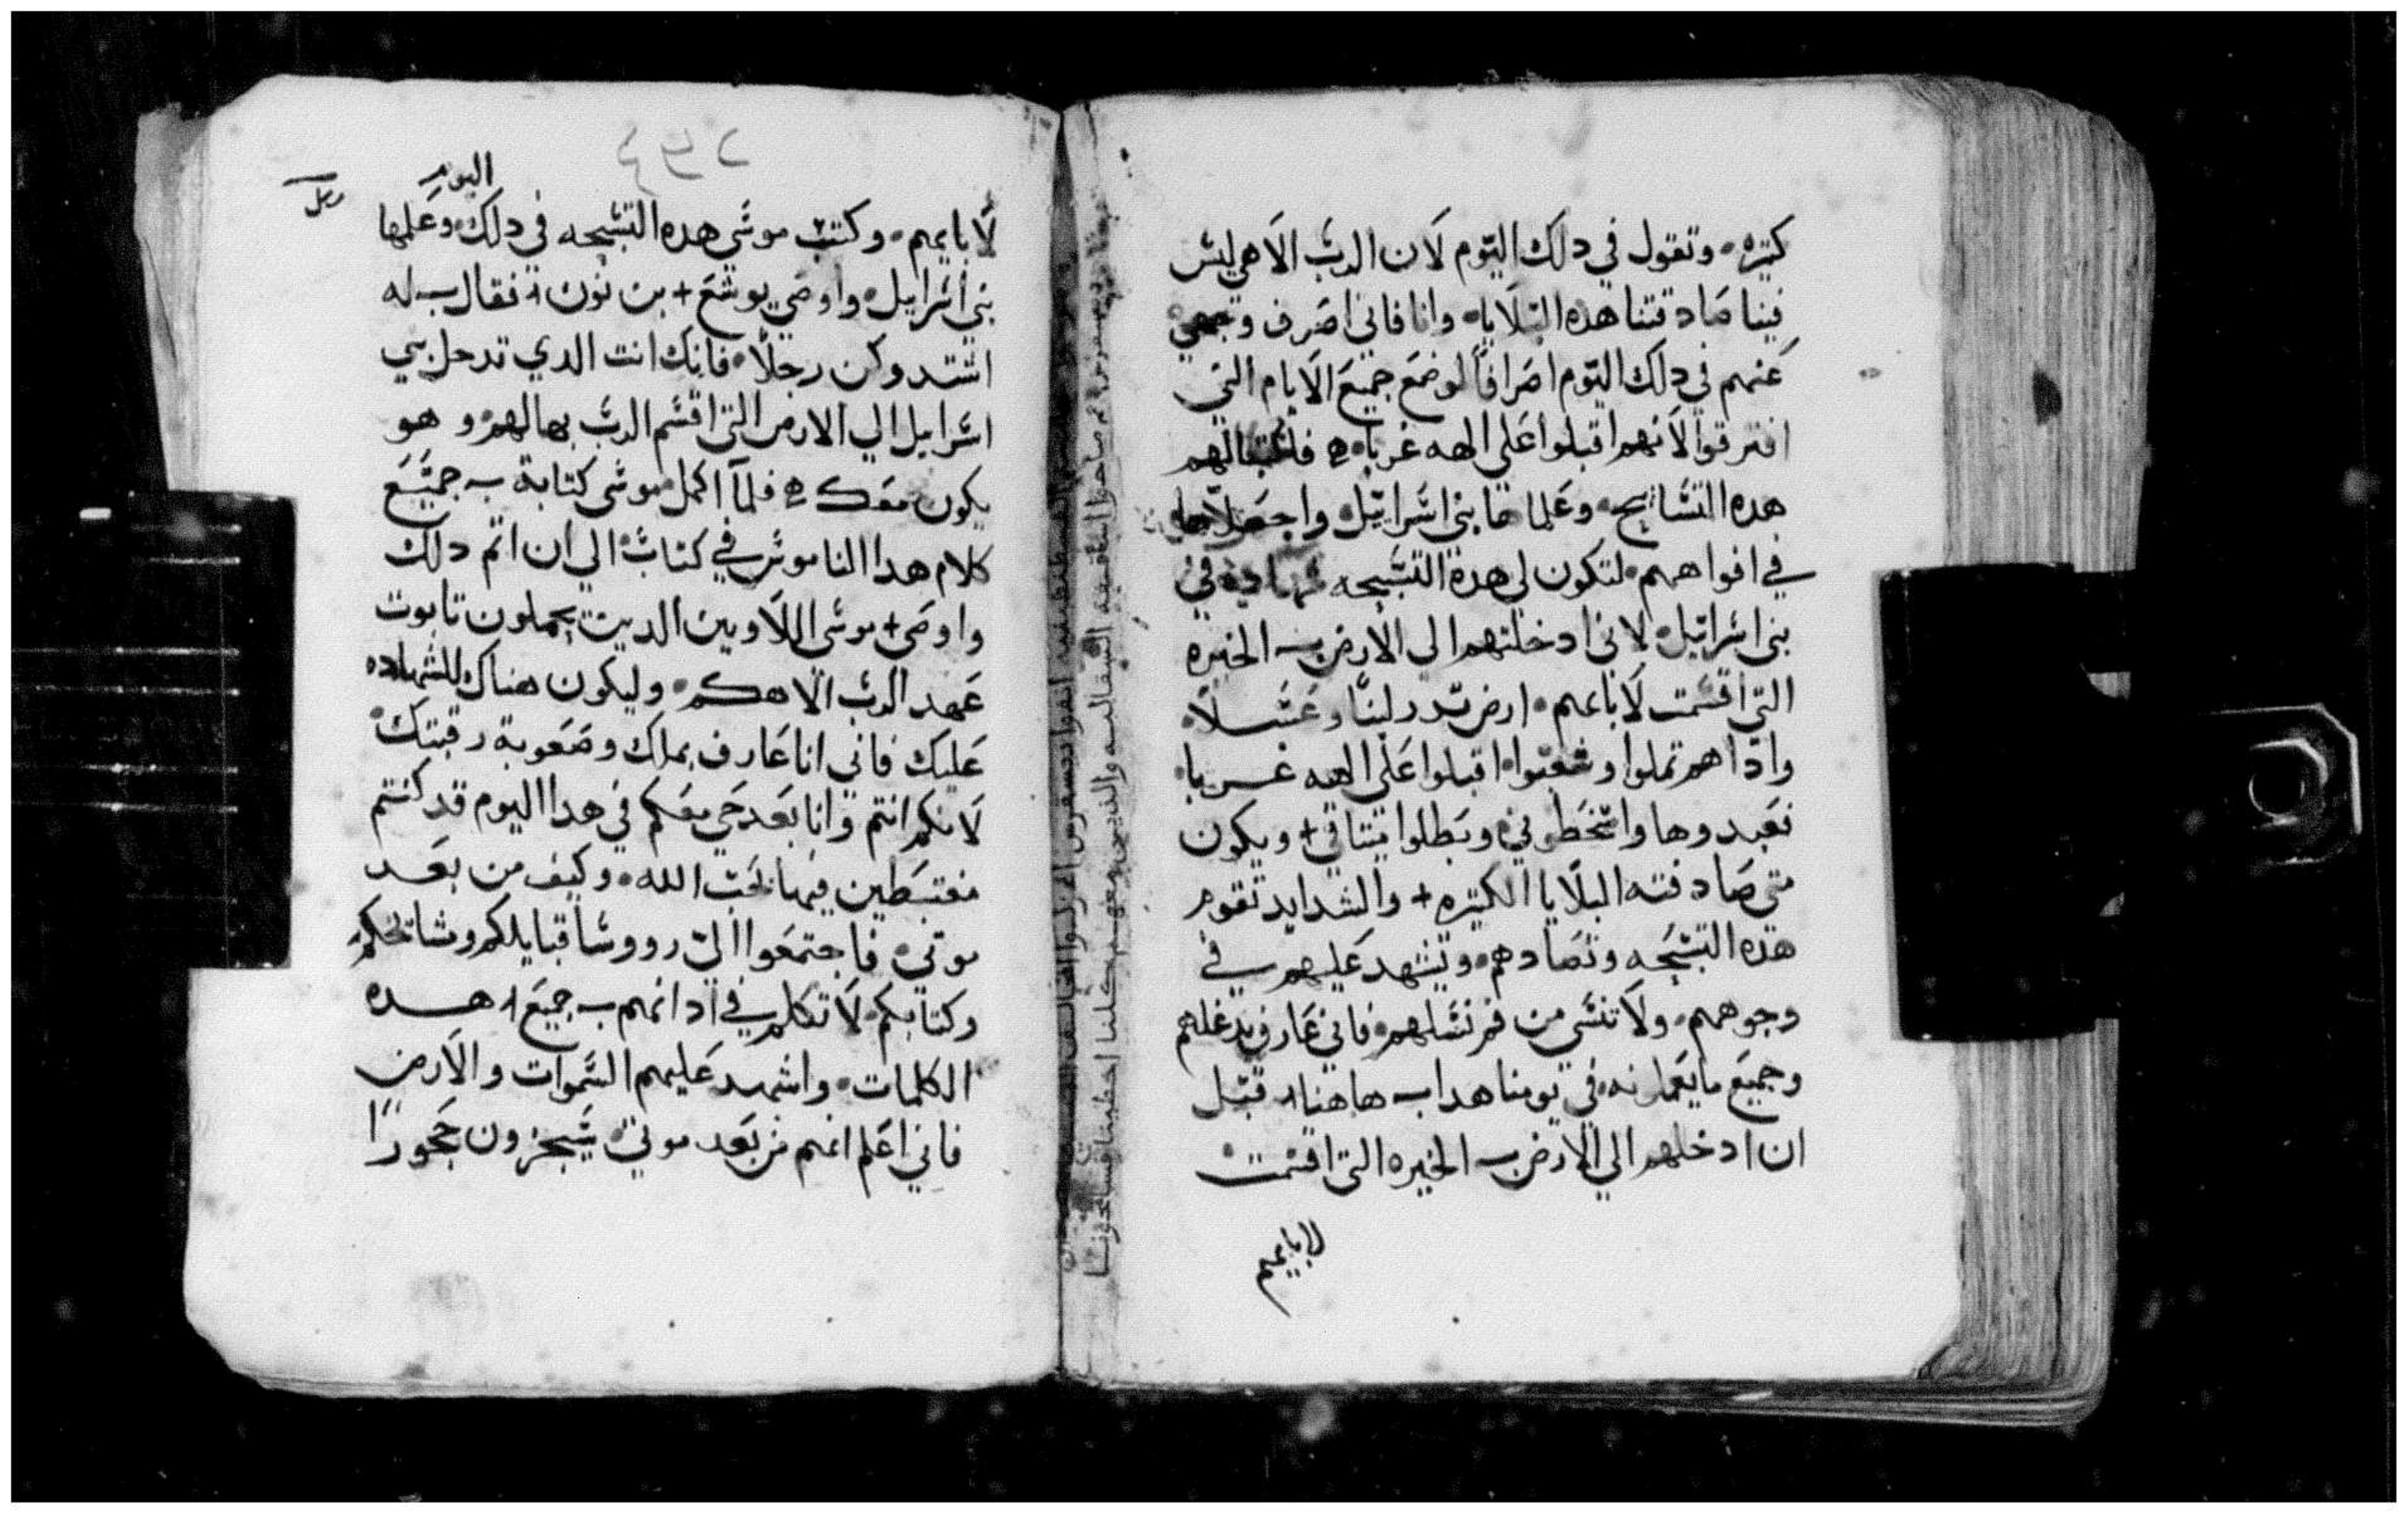 كتيره وتقول في دلك اليوم لان الرب الاهي ليس
فينا صادفتنا هذه البلايا وانا فاني اصرف وجهي
عنهم في دلك اليوم اصرافاً لوضع جميع الايام التي
افترقوا لانهم اقبلوا علي الهه غربا فلكتبا لهم
هذه التسابيح وعلماها بني اسراييل واجعلاها
في افواههم لتكون لي هذه التسبحه شهاده في
بني اسراييل لاني ادخلتهم الي الارض الخيره
التي اقسمت لابايهم ارض تدر لبنا وعسلاً
وادا هم تملوا وشعبوا اقبلوا علي الهه غربا
فعبدوها واسخطوني وبطلوا ميتاقي ويكون
متي صادفته البلايا الكتيره والشدايد تقوم
هذه التسبحه وتصادهم وتشهد عليهم في
وجوههم ولا تنسي من فم نسلهم فاني عارف بدغلهم
وجميع ما يعملونه في يومنا هدا هاهنا قبل
ان ادخلهم الي الارض الخيره التي اقسمت
لابايهم
اليوم
لابايهم وكتب موسي هذه التسبحه في دلك وعلمها
بني اسراييل واوصي يوشع بن نون فقال له
اشتد وكن رجلاً فانك انت الدي تدخل بني
اسراييل الي الارض التي اقسم الرب بها لهم وهو
يكون معك فلما اكمل موسي كتابة جميع
كلام هدا الناموس في كتاب الي ان اتم دلك
واوصي موسي اللاويين الدين يحملون تابوت
عهد الرب الاهكم وليكون هناك للشهاده
عليك فاني انا عارف بملك وصعوبة رقبتك
لانكم انتم وانا بعد حي معكم في هدا اليوم قد كنتم
مغتبطين فيما نحب الله وكيف من بعد
موتي فاجتمعوا الي رووسا قبايلكم ومشايخكم
وكتابكم لاتكلم في ادانهم جميع هده
الكلمات واشهد عليهم السموات والارض
فاني اعلم انهم من بعد موتي يتجزون حجورا